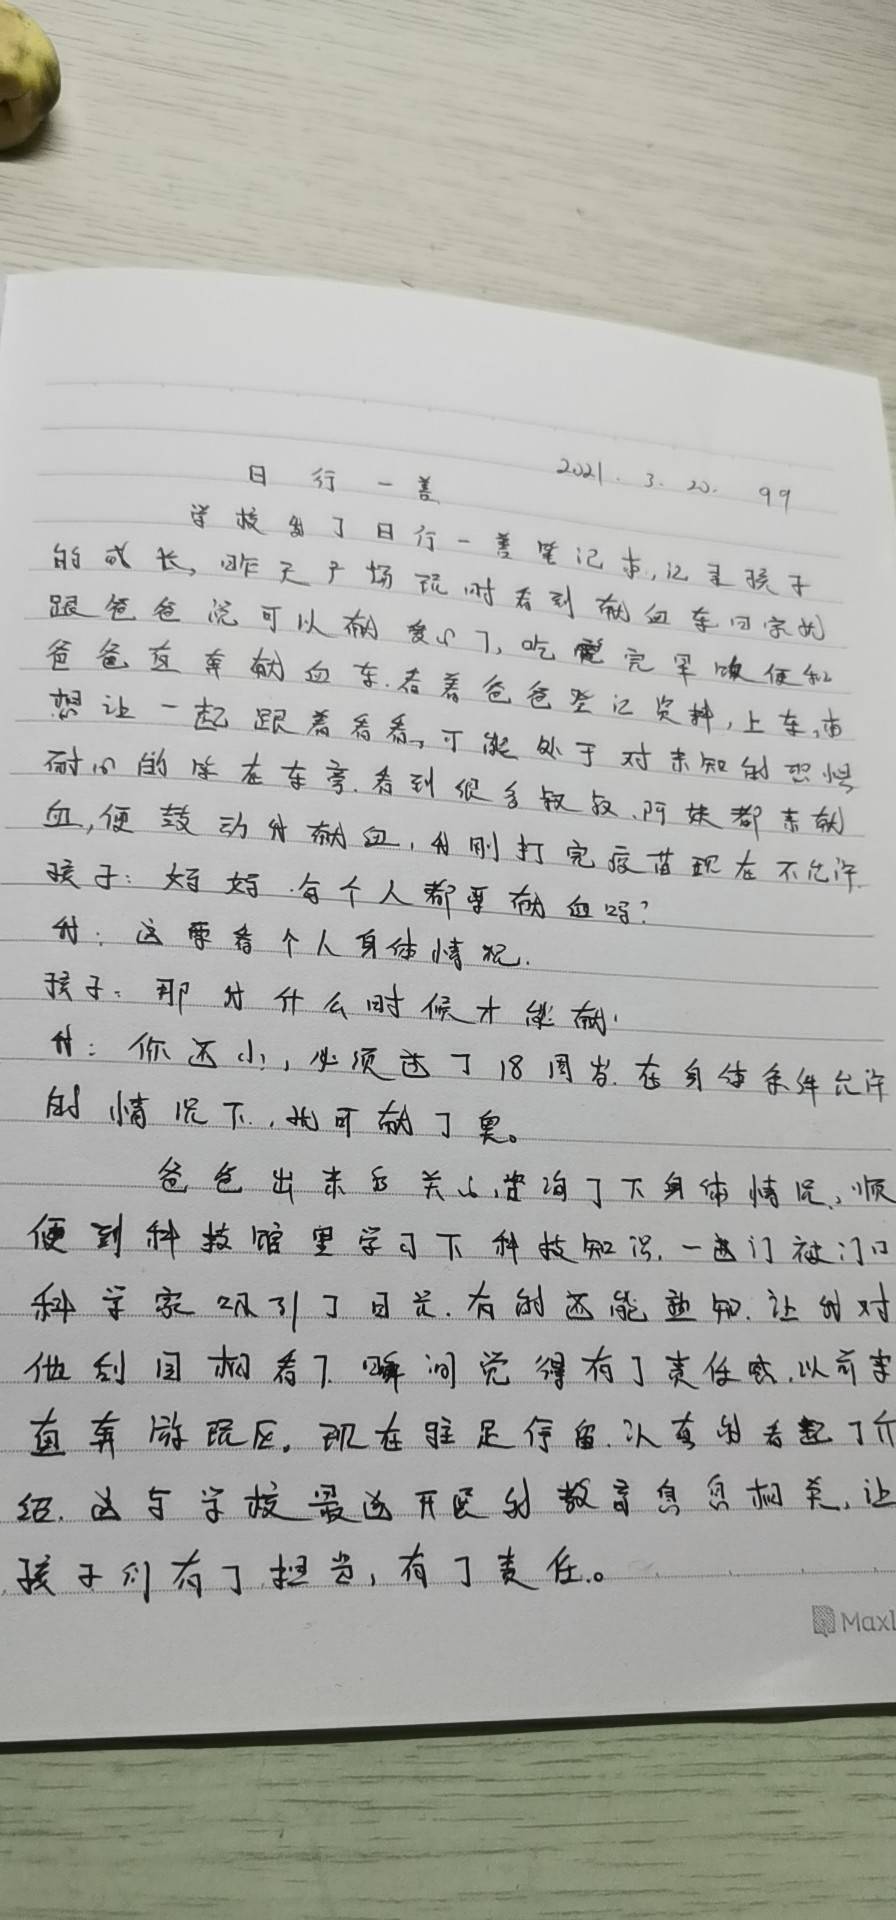 日行一善 2021.3.20. 99
学校发了日行一善笔记本,记录孩子
的成长,昨天广场玩时看到献血车回家就
跟爸爸说可以献爱心了,吃完早饭便和
爸爸直奔献血车.看着爸爸登记资料,上车,
想让一起跟着看看,可能处于对未知的恐惧
耐心的坐在车旁.看到很多叔叔、阿姨都来献
血,便鼓动我献血,我刚打完疫苗现在不允许.
孩子:妈妈.每个人都要献血吗?
我:这要看个人身体情况.
孩子:那我什么时候才能献.
我:你还小,必须过了18周岁.在身体条件允许
的情况下.,就可献了奥。
爸爸出来后关心,咨询了下身体情况,顺
便到科技馆里学习下科技知识.一进门被门口
科学家吸引了目光.有的还能熟知.让我对
他刮目相看了.瞬间觉得有了责任感.以前来
直奔游玩区。现在驻足停留.认真的看起了介
绍.这与学校最近开展的教育息息相关,让
孩子们有了担当,有了责任.。
Maxl